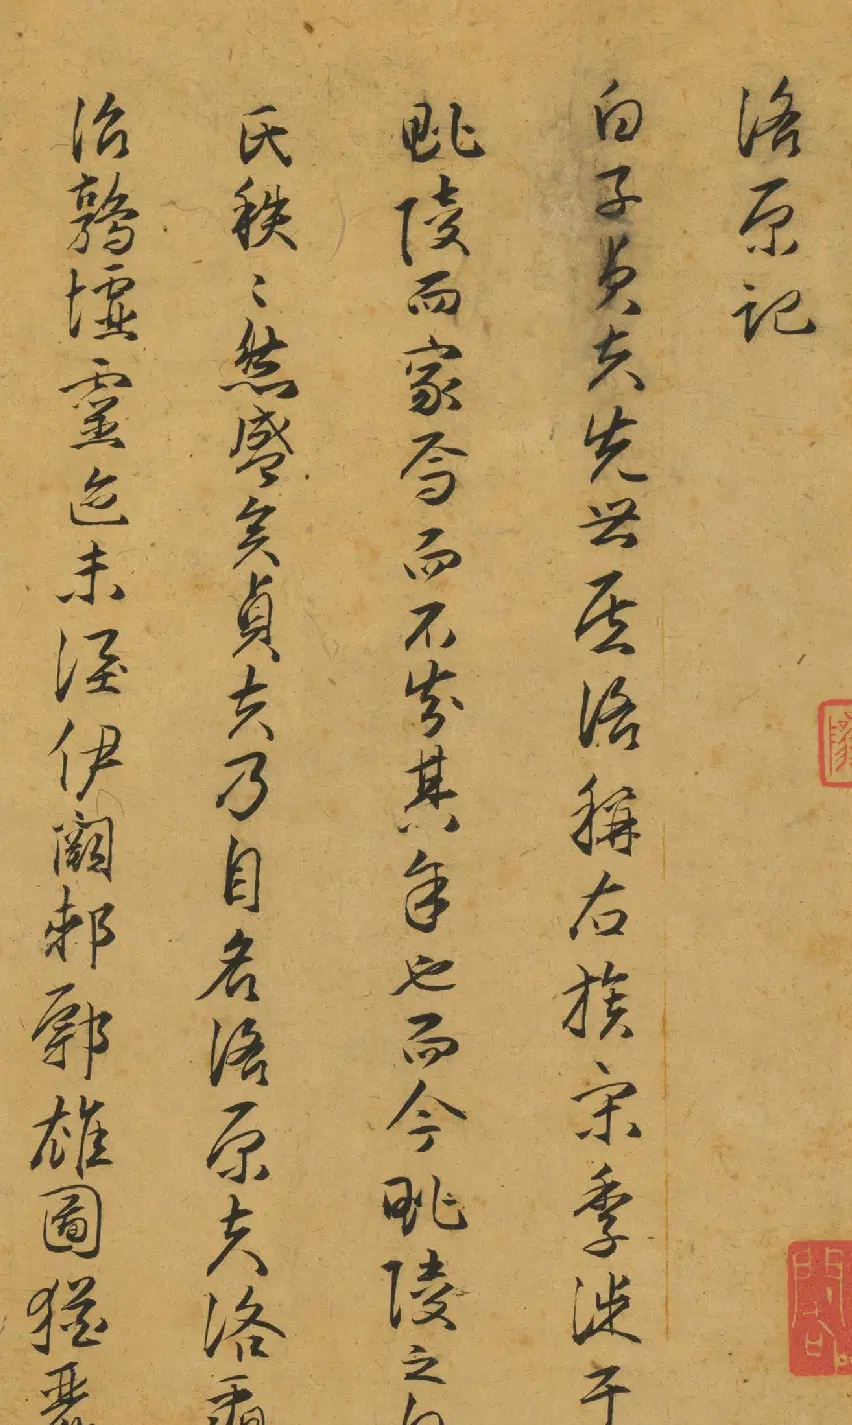 洛原記
白子貞夫先世居洛稱右族宋季徙于
毗陵而家焉而不其年也而今毗陵之白
氏秩〻然盛矣貞夫乃自名洛原夫洛
治鶉墟靈迹未湮伊闕郟鄏雄圖猶